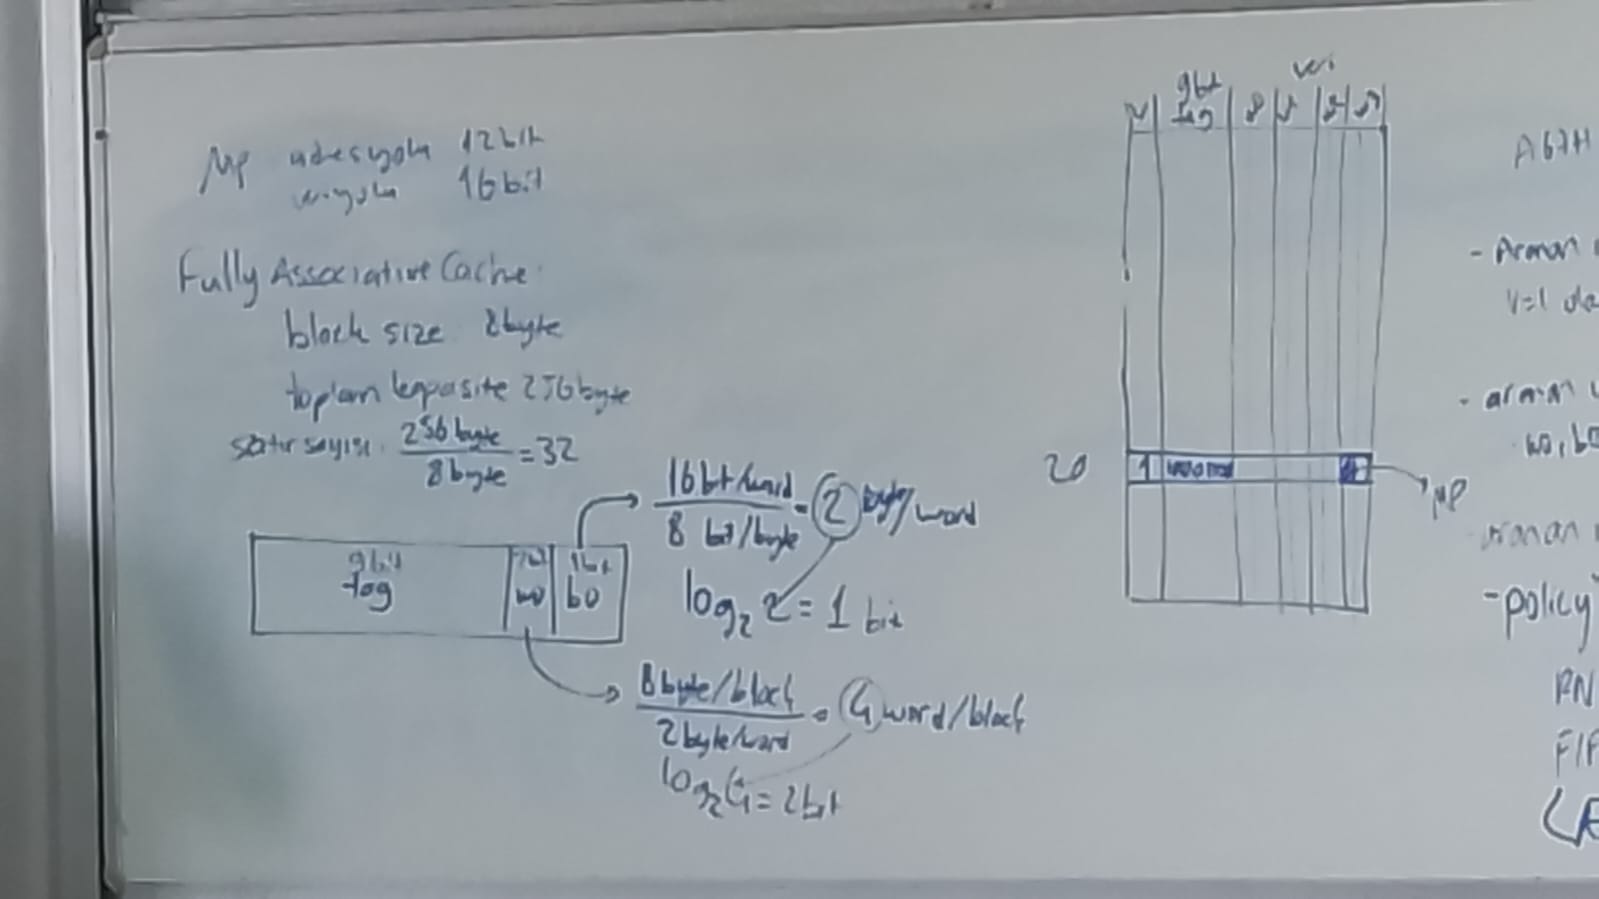 MP adresyolu 12bit
veriyolu 16bit
Fully Associative Cache:
block size 8byte
toplam kapasite 256byte
satır sayısı: 256 byte / 8 byte = 32
9bit 2bit 1bit
tag wo bo
16bit/word / 8 bit/byte = 2 byte/word
log₂ 2 = 1 bit
8byte/block / 2byte/word = 4 word/block
log₂4 = 2bit
veri
9bit
V tag
20 1
MP
A67H
- Aranan
V=1
- aranan
wo, bo
- aranan
- policy